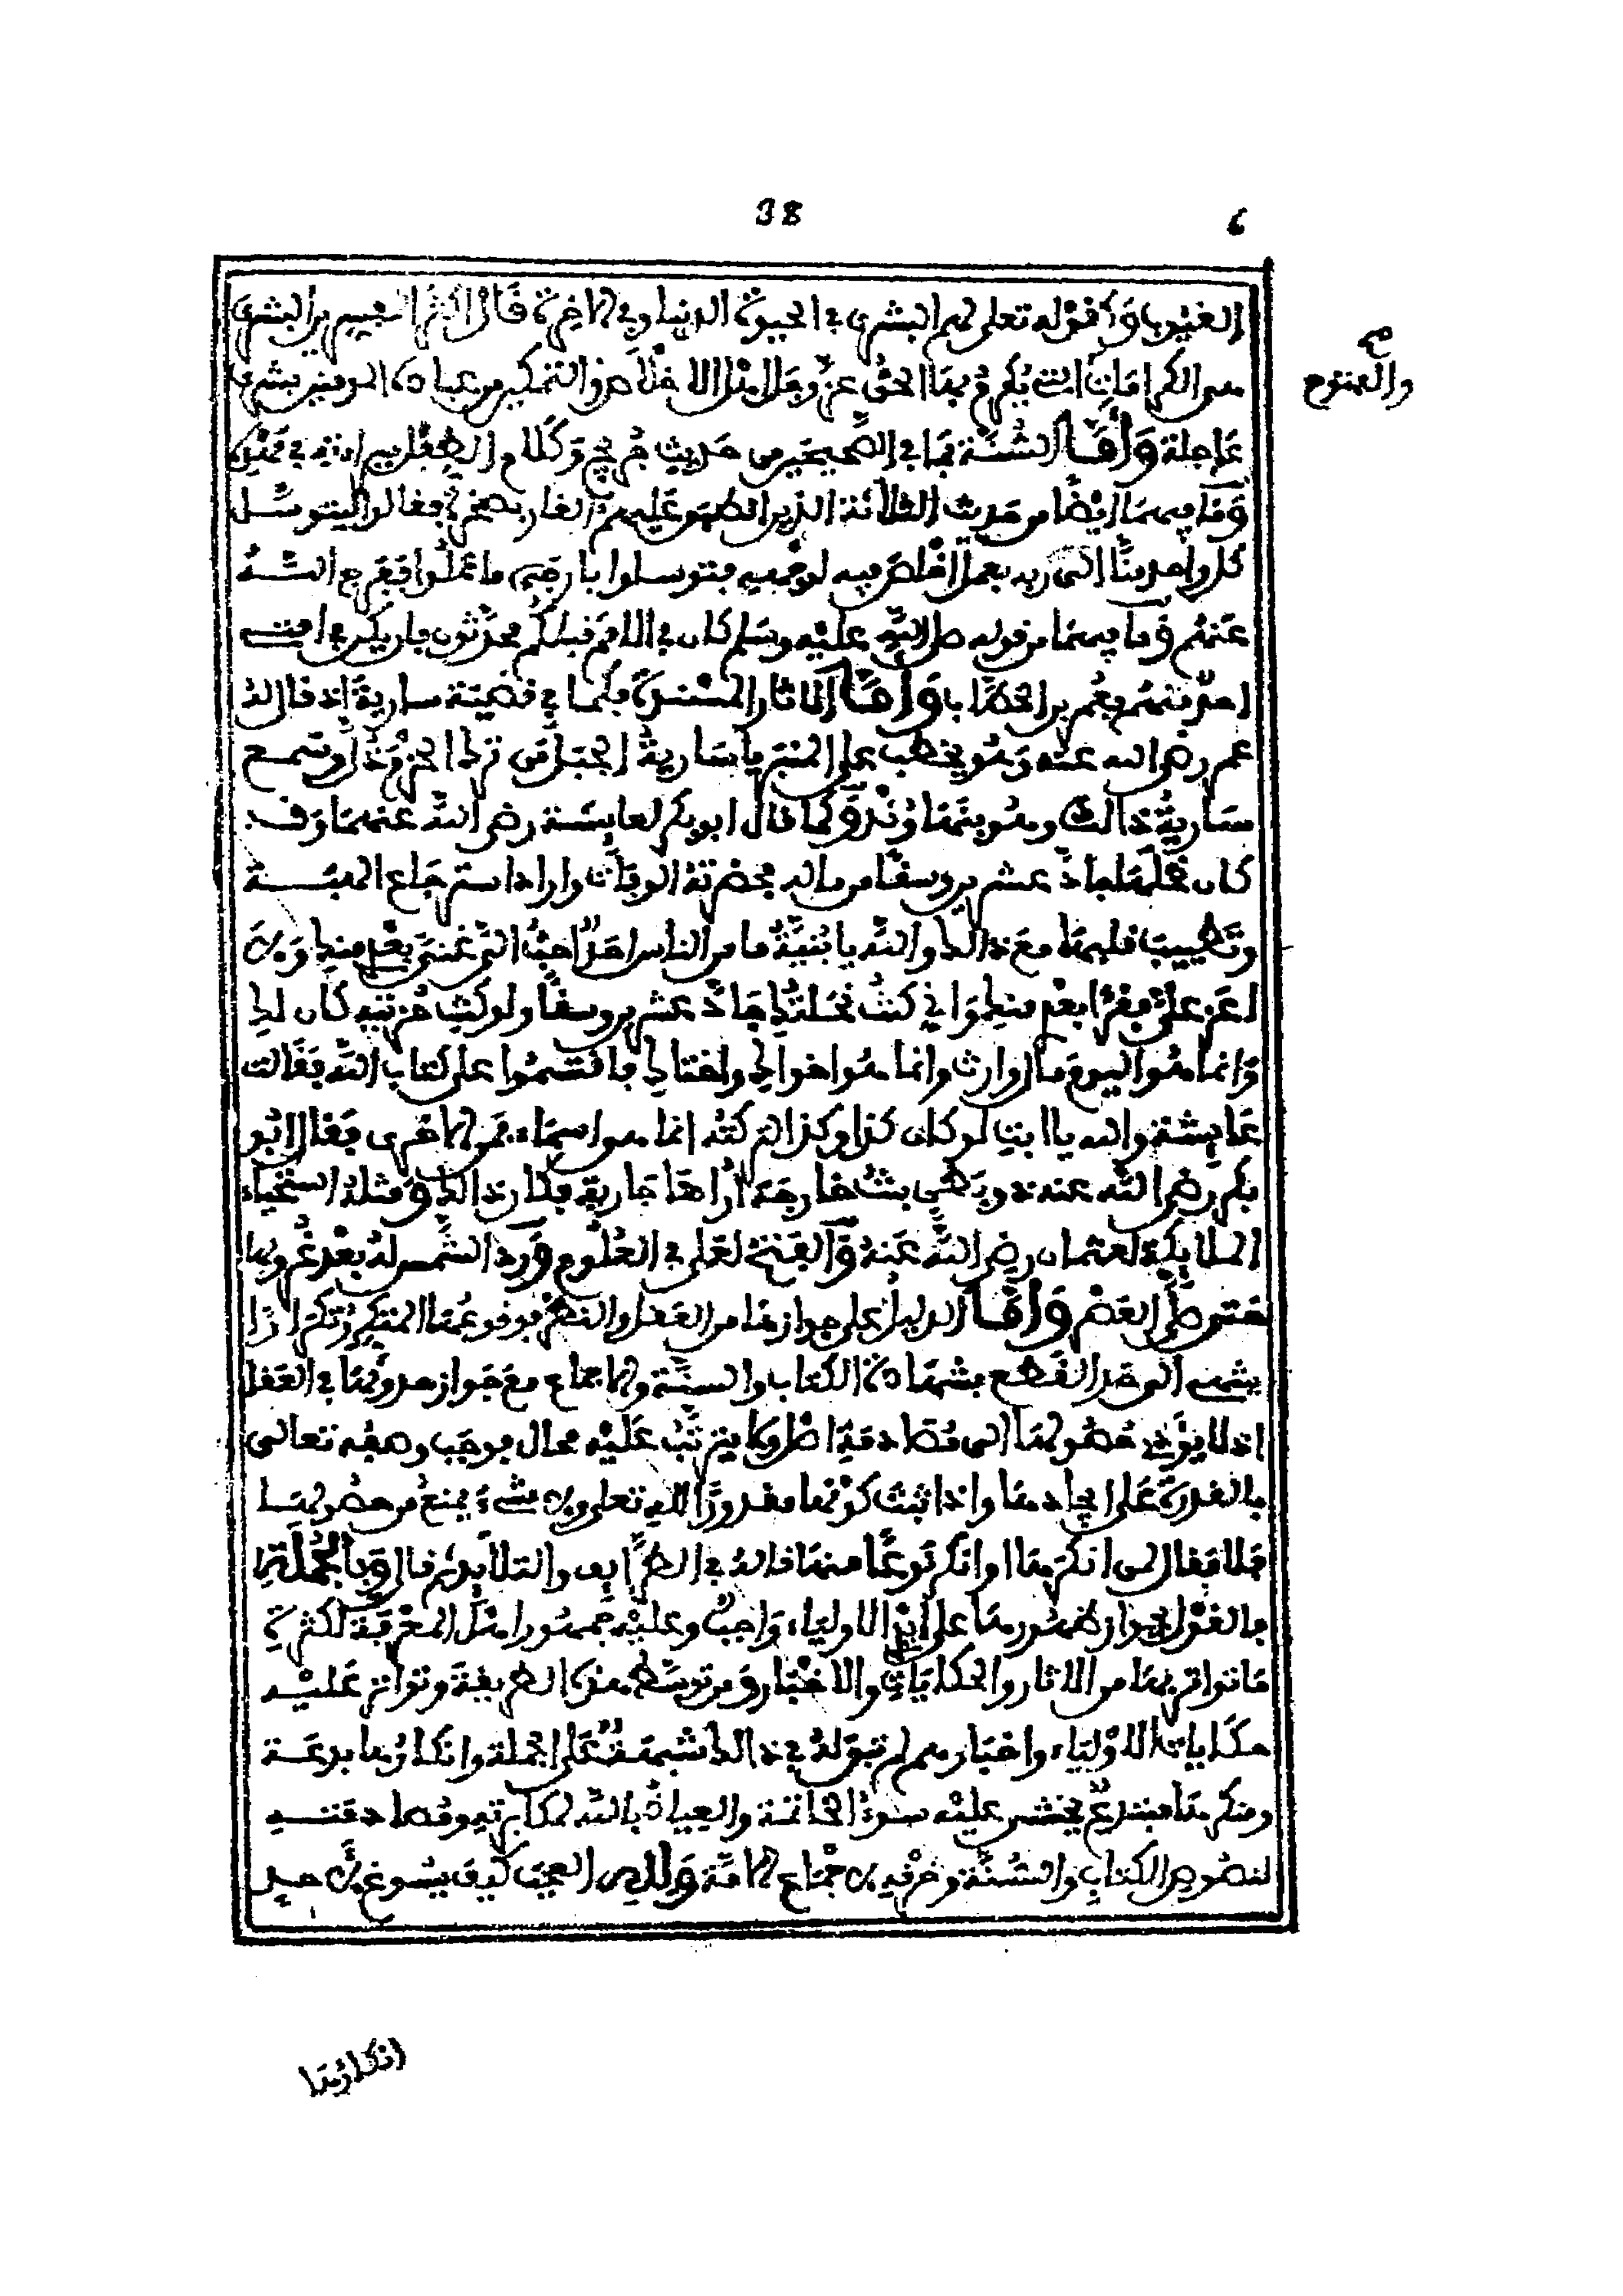 38
6
الغيوب وكقوله تعلى لهم البشرى في الحيوة الدنيا وفي الاخرة قال اكثر المفسرين البشرى
والفتوح صح
من الكرامات التي يكرم بها الحق عز وجل اهل الاخلاص والتمكين من عباده المومنين بشرى
عاجلة وأما السنة فما في الصحيحين من حديث جريج وكلام الطفل
وما فيهما ايضا من حديث الثلاثة الذين انطبق عليهم الغار بصخرة فقالوا ليتوسل
كل واحد منا الى ربه بعمل اخلص فيه لوجهه فتوسلوا بارجى ما عملوا ففرج الله
عنهم وما فيهما من قوله صلى الله عليه وسلم كان في الامم قبلكم محدثون فان يكن في امتي
احد منهم فعمر بن الخطاب وأما الاثار المسندة فكما في قضية سارية اذ قال له
عمر رضي الله عنه وهو يخطب على المنبر يا سارية الجبل وسمع
سارية ذالك وهو بنهاوند وكما قال ابو بكر لعايشة رضي الله عنهما وقد
كان نحلها جاذ عشرين وسقا من ماله فحضرته الوفاة واراد استرجاع الهبة
وتطييب قلبها مع ذالك والله يا بنية ما من الناس احد احب الي غنى بعدي منك ولا
اعز علي فقرا بعدي منك واني كنت نحلتك جاذ عشرين وسقا ولو كنت حزتيه كان لك
وانما هو اليوم مال وارث وانما هو اخواك واختاك فاقتسموا على كتاب الله فقالت
عايشة والله يا ابت لو كان كذا وكذا لتركته انما هي اسماء فمن الاخرى فقال ابو
بكر رضي الله عنه ذو بطن بنت خارجة اراها جارية فكان ذالك ومثله استحياء
الملايكة لعثمان رضي الله عنه والفتح لعلي في العلوم ورد الشمس له بعد غروبها
حتى صلى العصر وأما الدليل على جوازها من العقل والنظر فوقوعها المتكرر تكرارا
يثبت القطع بشهادة الكتاب والسنة والاجماع مع جواز حدوثها في العقل
اذ لا يؤدي حصولها الى مصادمة اصل ولا يترتب عليه محال فوجب وصفه تعالى
بالقدرة على ايجادها واذا ثبت كونها مقدورا لله تعلى ولا شيء يمنع من حصولها
فلا مقال لمن انكرها او انكر نوعا منها قاله في الطرايف والتلايد ثم قال وبالجملة
فالقول بجواز ظهورها على ايدي الاولياء واجب وعليه جمهور اهل المعرفة لكثرة
ما تواتر بها من الاثار والحكايات والاخبار ومن توسط هذه الطريقة وتواتر عليه
حكايات الاولياء واخبارهم لم تبق له في ذالك شبهة على الجملة وانكارها بدعة
ومنكرها مبتدع يخشى عليه سوء الخاتمة والعياذ بالله لمكابرته ومصادمته
لنصوص الكتاب والسنة وخرقه لاجماع الامة ولله العجب كيف يسوغ لاحد
انكارها